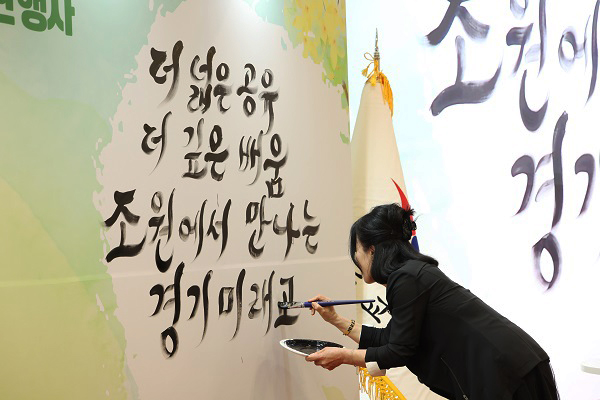 행사
더 넓은 공유
더 깊은 배움
조원에서 만나는
경기미래교
조원에
경